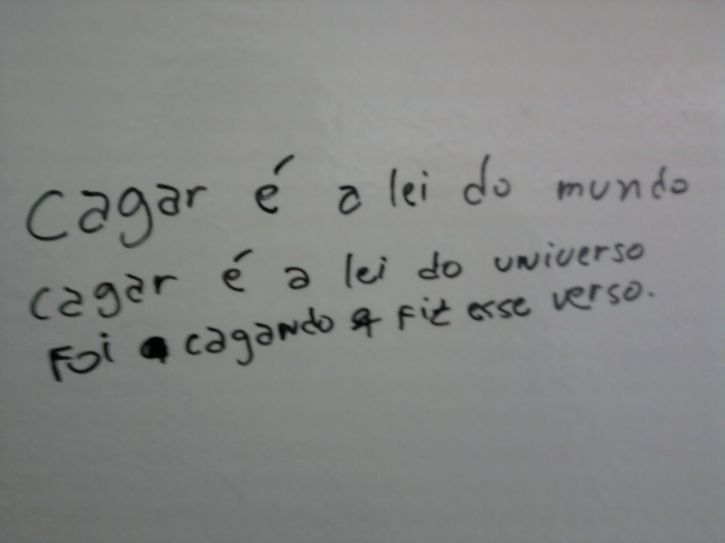 Cagar é a lei do mundo
cagar é a lei do universo
Foi cagando q fiz esse verso.